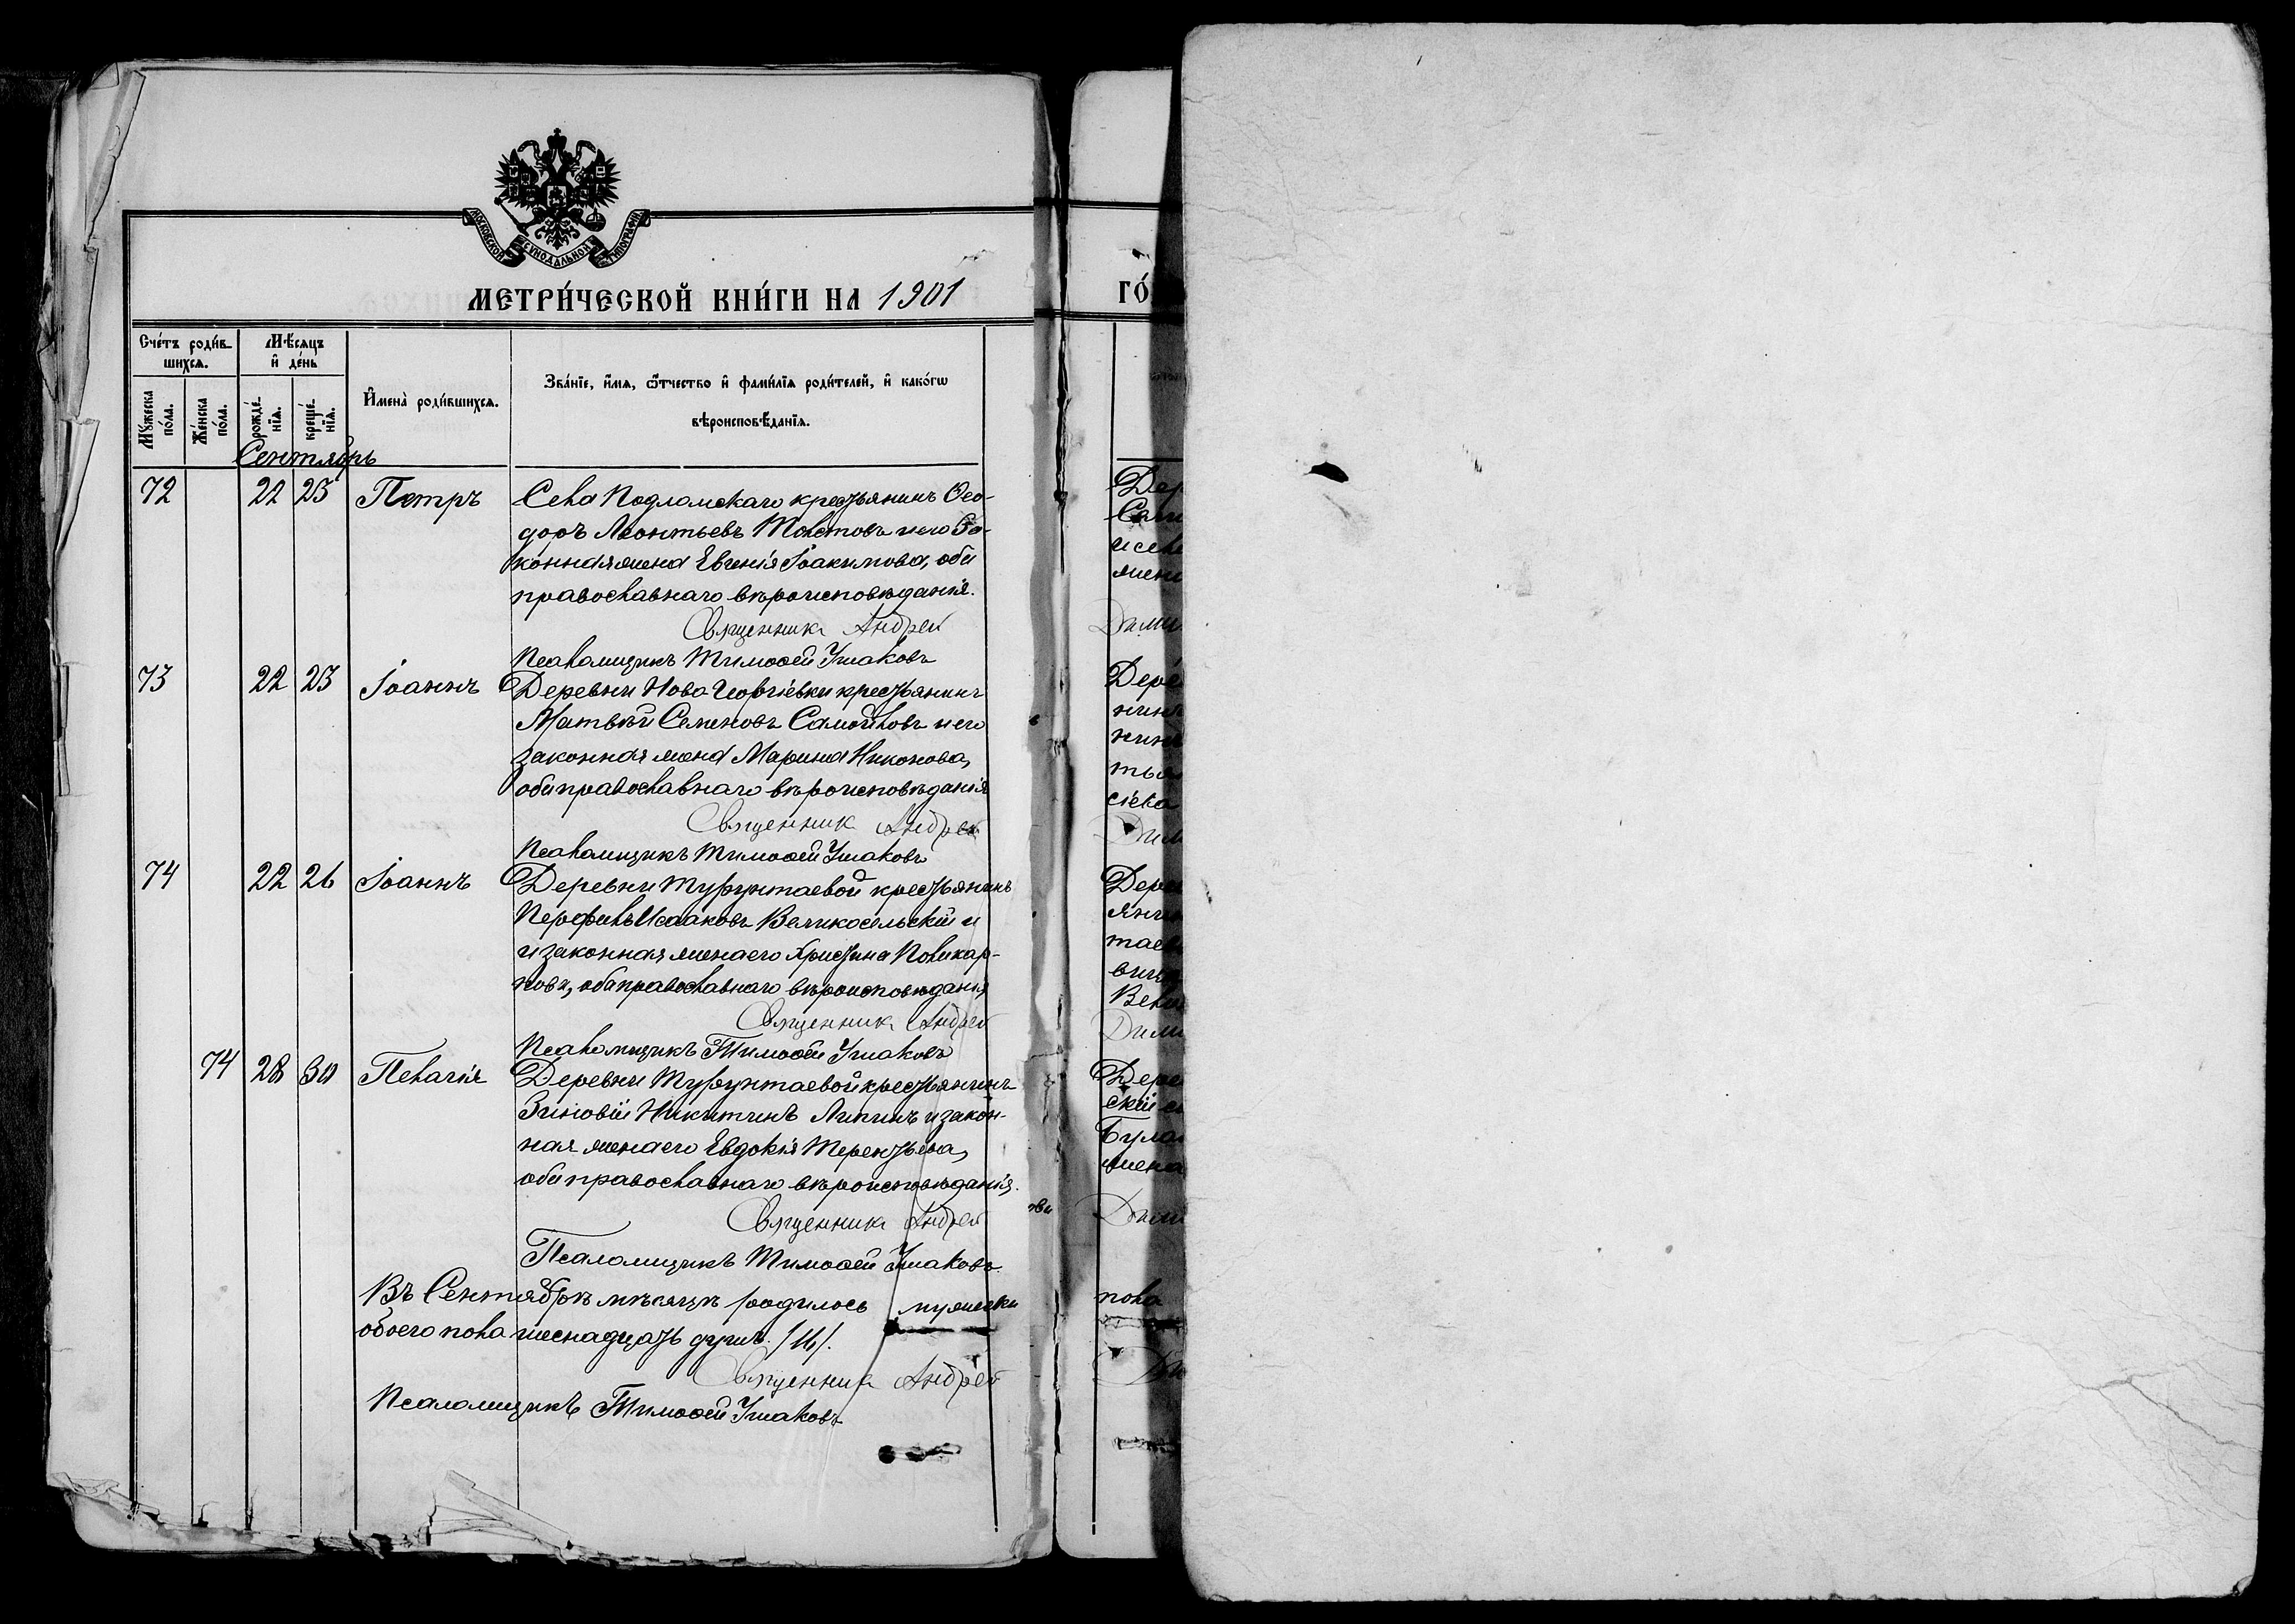 МОСКОВСКОЙ СѴНОДАЛЬНОЙ ТИПОГРАФІИ
МЕТРИ́ЧЕСКОЙ КНИ́ГИ НА 1901
ГО́
Сче́тъ роди́в-
шихсѧ.
Мѣ́сѧцъ
и҆ де́нь
Мꙋ́жеска
по́ла.
Же́нска
по́ла.
рожде́-
нїѧ.
креще́-
нїѧ.
И҆мена̀ роди́вшихсѧ.
Зва́нїе, и҆́мѧ, ѻ҆́тчество и҆ фами́лїѧ роди́телей, и҆ како́гѡ
вѣроисповѣ́данїѧ.
Сентябрь
72 22 23 Петръ Села Подломскаго крестьянинъ Ѳео-
доръ Леонтьевъ Толстовъ и его за-
конная жена Евгенія Іоакимова, оба
православнаго вѣроисповѣданія.
Священникъ Андрей
Псаломщикъ Тимоѳей Ушаковъ
73 22 23 Іоаннъ Деревни Ново Георгіевки крестьянинъ
Матвѣй Семеновъ Самойловъ и его
законная жена Марина Никонова,
оба православнаго вѣроисповѣданія
Священник Андрей
Псаломщикъ Тимоѳей Ушаковъ
74 22 26 Іоаннъ Деревни Турунтаевой крестьянинъ
Перфилъ Исааковъ Великосельскій и
и законная жена его Христина Поликар-
пова, оба православнаго вѣроисповѣданія
Священникъ Андрей
Псаломщикъ Тимоѳей Ушаковъ
74 28 30 Пелагія Деревни Турунтаевой крестьянинъ
Зиновій Никитинъ Липинъ и закон-
ная жена его Евдокія Терентьева,
оба православнаго вѣроисповѣданія.
Священникъ Андрей
Псаломщикъ Тимоѳей Ушаковъ
Въ Сентябрѣ мѣсяцѣ родилось мужеска
обоего пола шеснадцать душъ /16/.
Священникъ Андрей
Псаломщикъ Тимоѳей Ушаковъ
пола